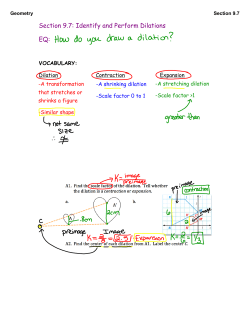 Geometry Section 9.7
Section 9.7: Identify and Perform Dilations
EQ: How do you draw a dilation?
VOCABULARY:
Dilation Contraction Expansion
-A transformation that stretches or shrinks a figure
-Similar shape
→ not same size
∴ ≠
-A shrinking dilation
-Scale factor 0 to 1
-A stretching dilation
-Scale factor >1
greater than
K = image
preimage
A1. Find the scale factor of the dilation. Tell whether
the dilation is a contraction or expansion.
a.
preimage
contraction
image
C
.8cm
2cm
6
2
preimage Image
Expansion
A2. Find the center of each dilation from A1. Label the center C.